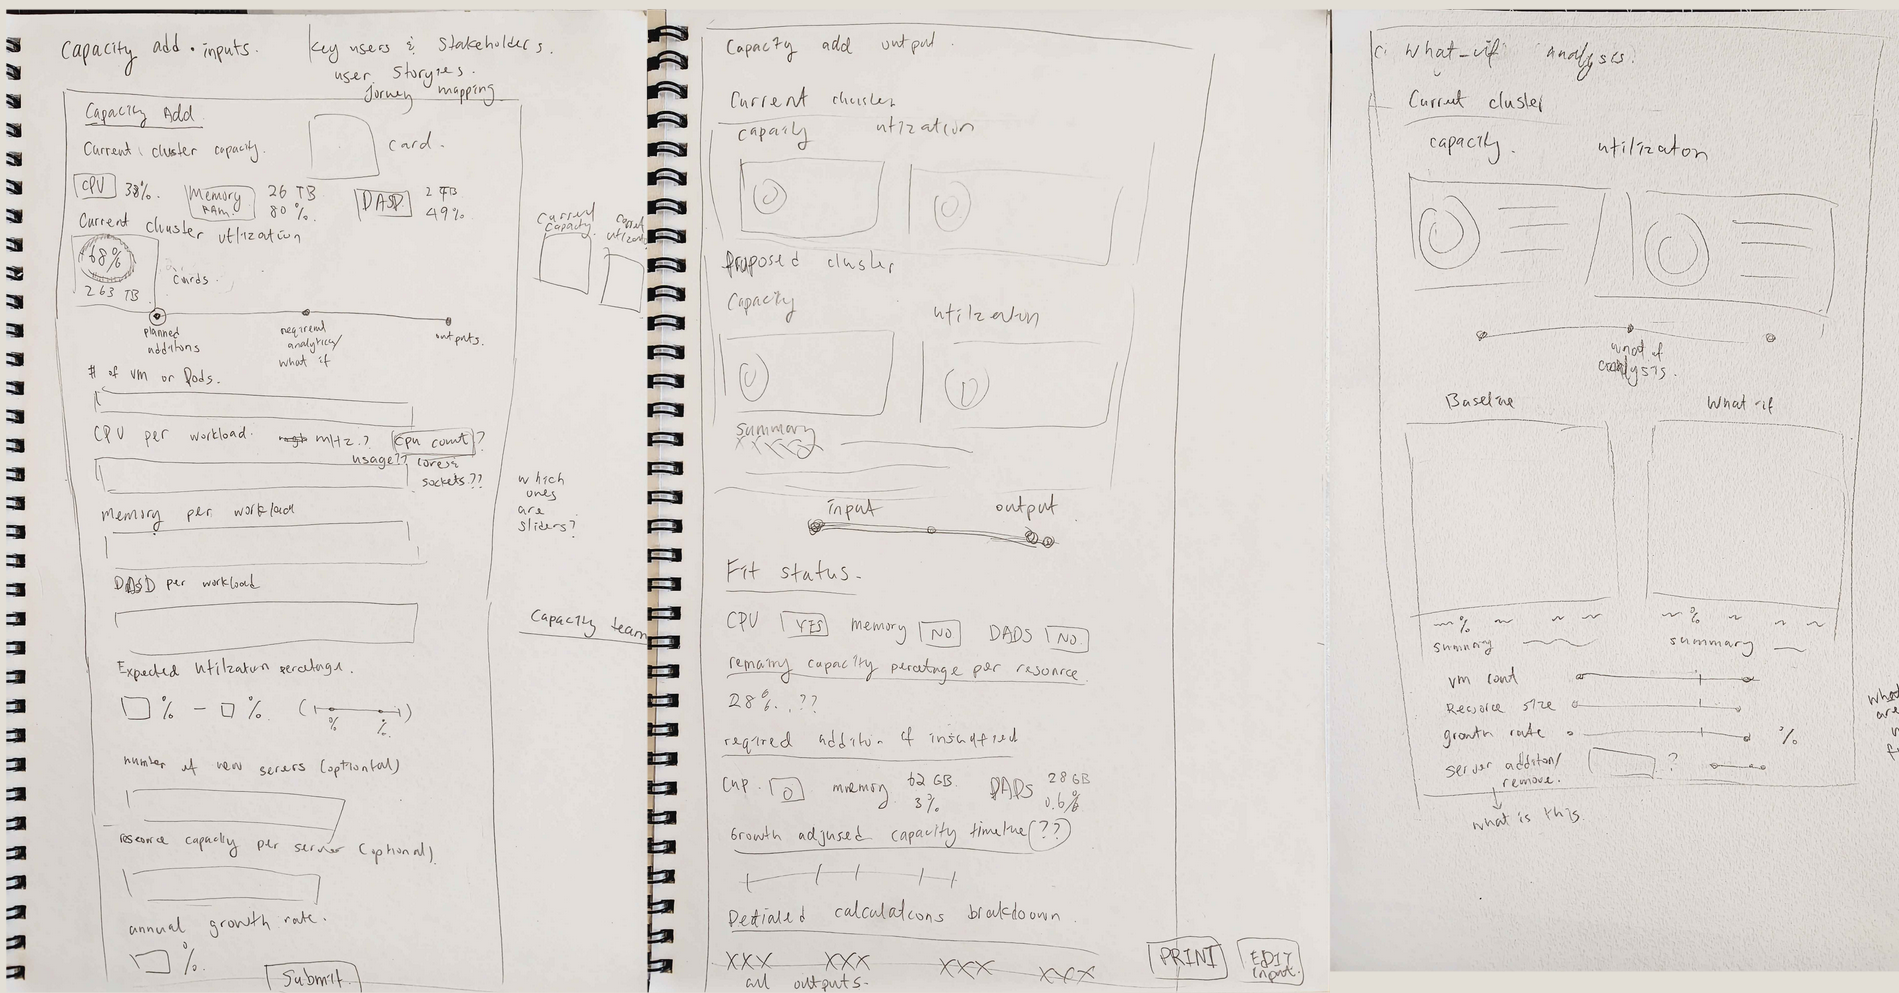 Capacity add · inputs.
key users & stakeholders.
user storyies.
Jorney mapping
Capacity Add
Current cluster capacity.
card.
CPU 38%.
Memory RAM. 26 TB 80%.
DASD 2 TB 49%
Current cluster utlization
68%
263 TB
cards.
Current Capacity
planned additons
what if
outputs.
# of VM or Pods.
CPU per workload. mHz.? cpu count?
usage?? cores &
sockets??
which
ones
are
sliders?
Memory per workload
DASD per workload
Capacity team
Expected utilization percetage.
% - % ( % %. )
number of new servers (optiontal)
resorce capacity per server (optional).
annual growth rate.
%.
Submit.
Capacity add output.
Current cluster
capacity utilization
proposed cluster
Capacity utilization
Summary
XXXXX
input output
Fit status.
CPU YES memory NO DADS NO.
remaing capacity percetage per resource
28%..??
required additon if insuffied
CUP. 0 memory 62 GB. 3% DADS 28 GB 0.6%
Growth adjused capacity timelne(??)
Detialed calculations brakdown.
XXX XXX XXX XXX
all outputs.
PRINT
EDIT input.
C. What-if Analysis.
Current cluster
capacity. utilizaton
what if
Baseline What-if
% %
summary summary
vm cont
Resorce size
growth rate %
server additon/ ?
remove.
what is this.